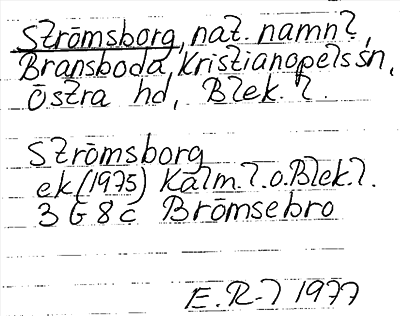 Strömsborg, nat. namn l,
Bransboda, Kristianopels sn,
Östra hd, Blek. l.
Strömsborg
ek (1975) Kalm. l. o. Blek. l.
3 G 8 c Brömsebro
E. R-l 1977